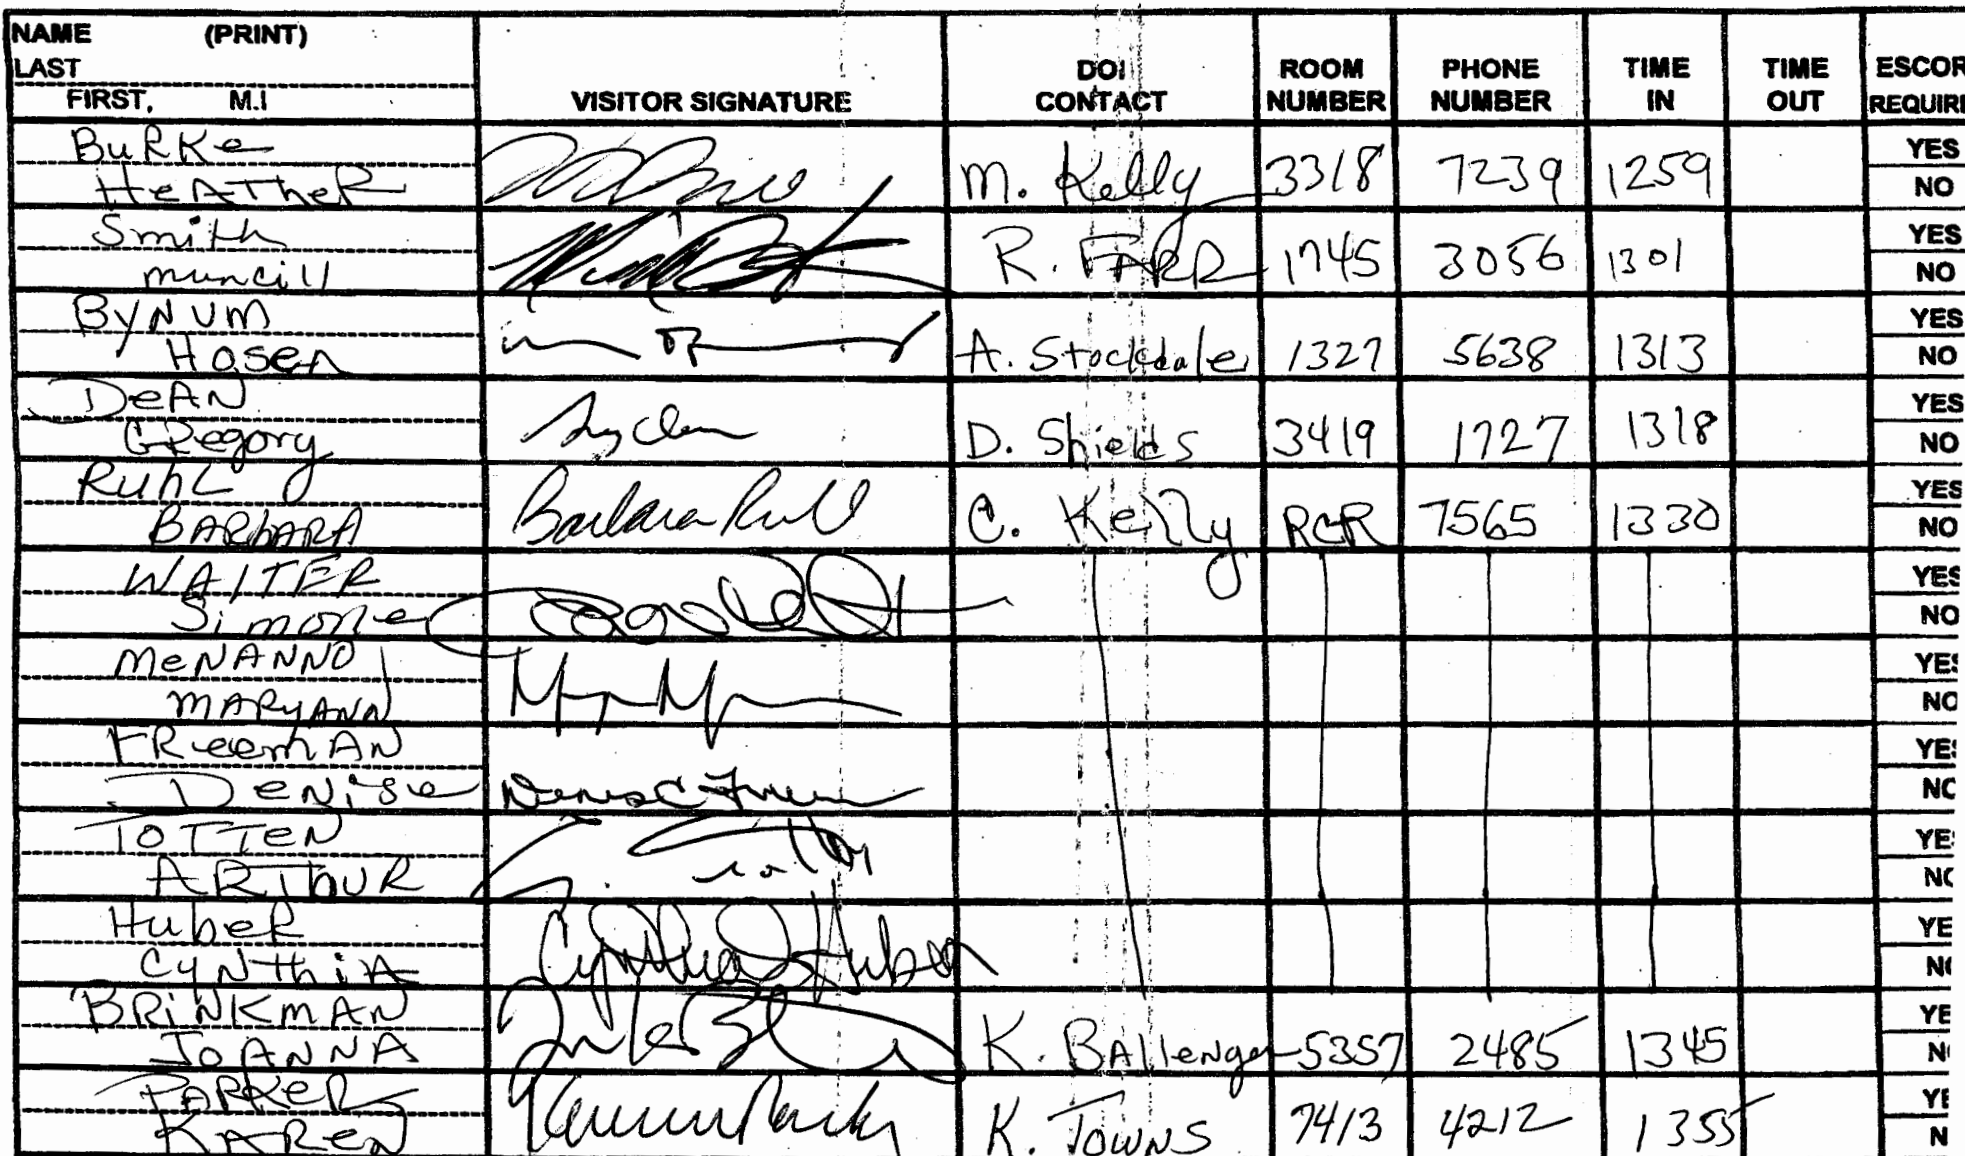 NAME (PRINT)
LAST
FIRST, M.I
VISITOR SIGNATURE
DOI CONTACT
ROOM NUMBER
PHONE NUMBER
TIME IN
TIME OUT
ESCOR
REQUIRE
BuRKe
HeATheR
M. Kelly 3318 7239 1259
YES
NO
Smith
muncill
R. FARR 1745 3056 1301
YES
NO
BYNUM
Hosen
A. Stockdale 1327 5638 1313
YES
NO
DeAN
GRegory
D. Shields 3419 1727 1318
YES
NO
Ruhl
BARbARA
Barbara Ruhl
C. Kelly RCR 7565 1330
YES
NO
WALTER
Simone
YES
NO
MeNANNO
MARyANN
YES
NO
FReemAN
DeNise
Denise C Freeman
YES
NO
TOTTeN
ARThUR
YES
NO
HubeR
CyNThiA
Cynthia Huber
YE
NO
BRiNKmAN
JoANNA
K. BAllenger 5357 2485 1345
YE
N
PARKeR
KAReN
Karen Parker
K. TOWNS 7413 4212 1355
YE
N